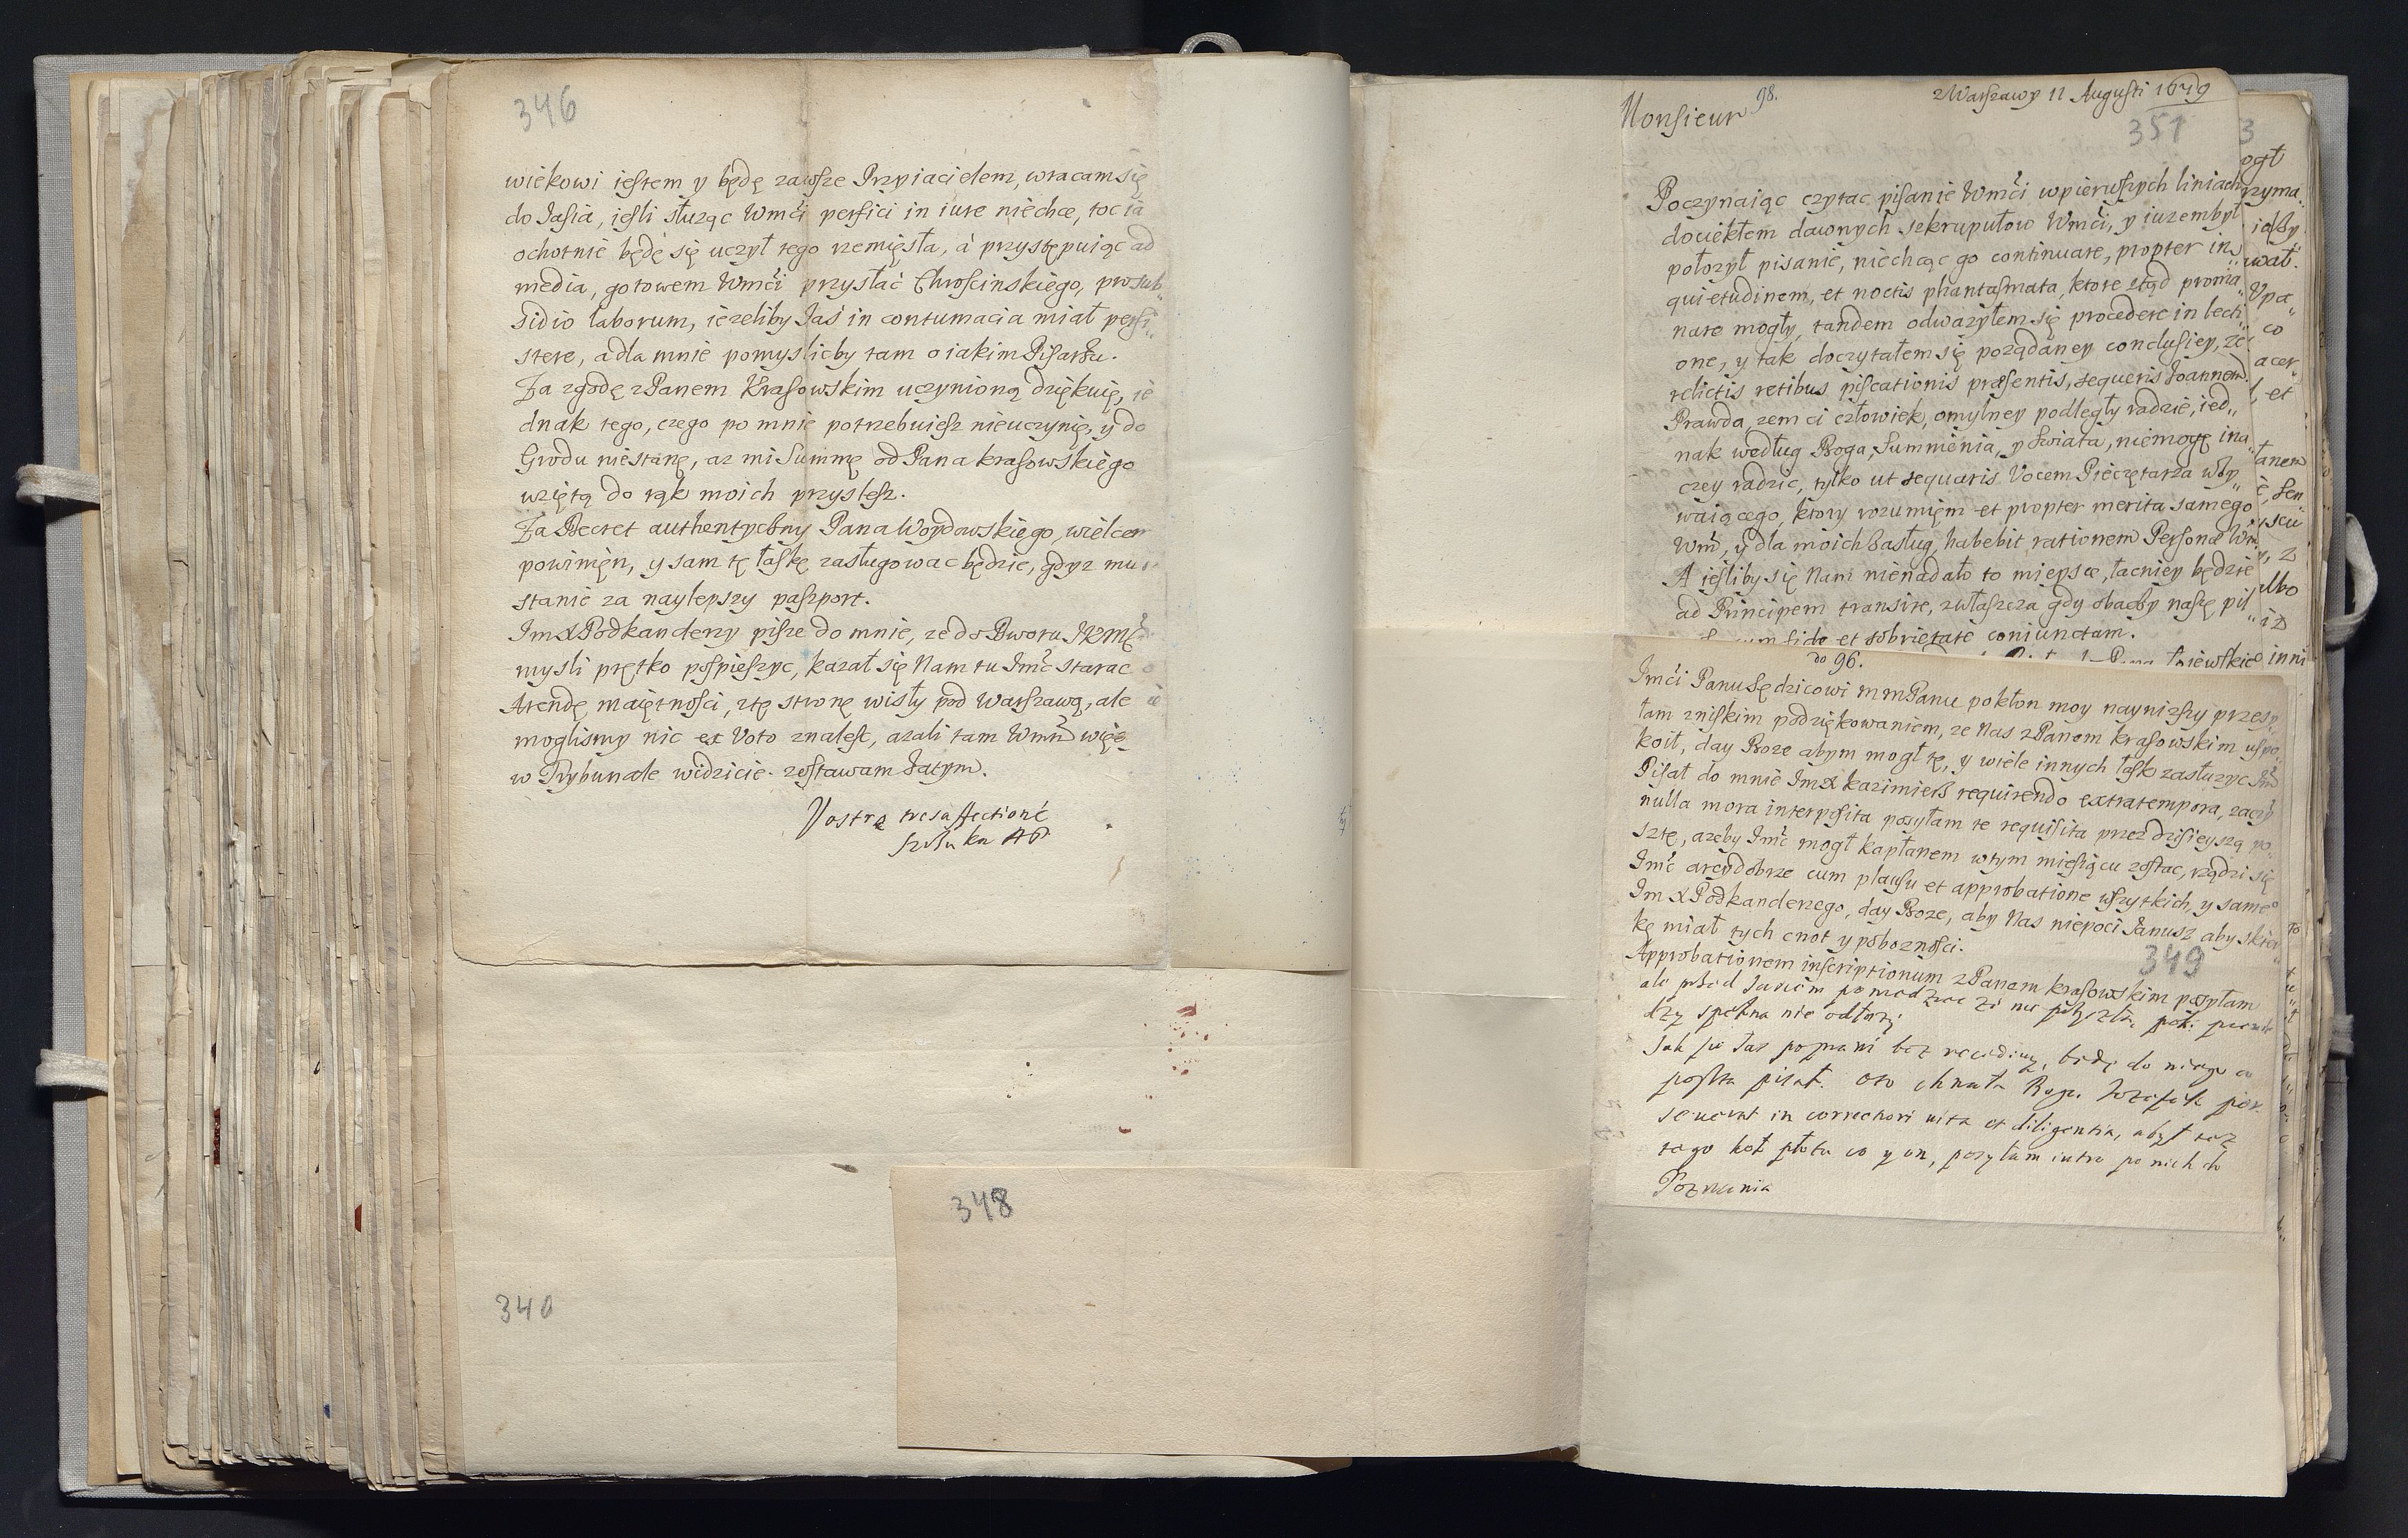 346
wiekowi iestem y będę zawsze Przyiacielem, wracam się
do Jasia, iesli służąc Wmći persici in iure niechce, toc ia
ochotnie będę się uczył tego rzemięsła, à przystępuiąc ad
media, gotowem Wmći przysłać Chroscinskiego, pro sub„
sidio laborum, ieżeliby Jaś in contumacia miał persi„
stere, a dla mnie pomyslicby tam o iakim Pisarzu.
Za zgodę z Panem Krasowskim uczynioną dziękuię, ie
dnak tego, czego po mnie potrzebuiesz nieuczynię, y do
Grodu niestanę, az mi Summę od Pana Krasowskiego
wziętą do rąk moich przyslesz.
Za Decret authentyczny Pana Woydowskiego, wielcem
powinięn, y sam tę łaskę zasługowac będzie, gdyz mu
stanie za naylepszy paszport.
Im X Podkanclerzy pisze do mnie, ze do Dworu JKMći
mysli prętko pospieszyc, kazał się Nam tu Imć starac o
Arendę maiętnosci, z tę stronę wisły pod Warszawą, ale nie
moglismy nic ex Voto znalesć, azali tam Wmć więc
w Trybunale widzicie. zostawam Zatym.
Vostre tres affectioné
Szołu ka AP
340
348
98.
z Warszawy 11 Augusti 1679
Monsieur
351
Poczynaiąc czytac pisanie Wmći w pierwszych liniach
dociekłem dawnych szkrupułow Wmći, y iuzem był
położył pisanie, niechcąc go continuare, propter in„
quietudinem, et noctis phantasmata, ktore ztąd proma„
nare mogły, tandem odwazyłem się procedere in lecti„
one, y tak doczytałem się poządaney conclusiey, ze
relictis retibus piscationis præsentis, sequeris Joannem.
Prawda, zem ci człowiek, omylney podległy radzie, ied„
nak według Boga, Sumnienia, y Swiata, niemogę ina„
czey radzic, tylko ut sequaris Vocem Pieczętarza wzy„
waiącego, ktory rozumięm et propter merita samego
Wmć, y dla moich Zasług, habebit rationem Personæ Wm
A iesliby się Nam nienadało to mieysce, łacniey będzie
ad Principem transire, zwłaszcza gdy obaczy naszę pil„
et sobrietate coniunctam.
do 96.
Imći Panu Sędzicowi mmPanu pokłon moy naynizszy przesy„
łam z niskim podziękowaniem, ze Nas z Panem Krasowskim uspo„
koił, day Boze abym mogł tę, y wiele innych łask zasłuzyc Imć
Pisał do mnie Im X Kazimierz requirendo extratempora, zaczym
nulla mora interposita posyłam te requisita przez dzisieyszą po„
sztę, azeby Imć mogł kapłanem w tym miesiącu zostac, rządzi się
Imć arcydobrze cum plausu et approbatione wszytkich, y same„
Im X Podkanclerzego, day Boze, aby Nas niepoci Janusz aby skier
kę miał tych cnot y poboznosci.
349
Approbationem inscriptionum z Panem Krasowskim posyłam
dzy spełna nie odłozy
Jak się Jas poprawi bez recidiuy, będę do niego co
poszta pisał. Oto chwała Bogu Jozefek per„
seuerat in correctiori uita et diligentia, abyſ tez
tego koł płotu co y on, posyłam iutro po nich do
Poznania
3
ogł
rzyma„
Vpa„
co
acer„
et
albo
inni